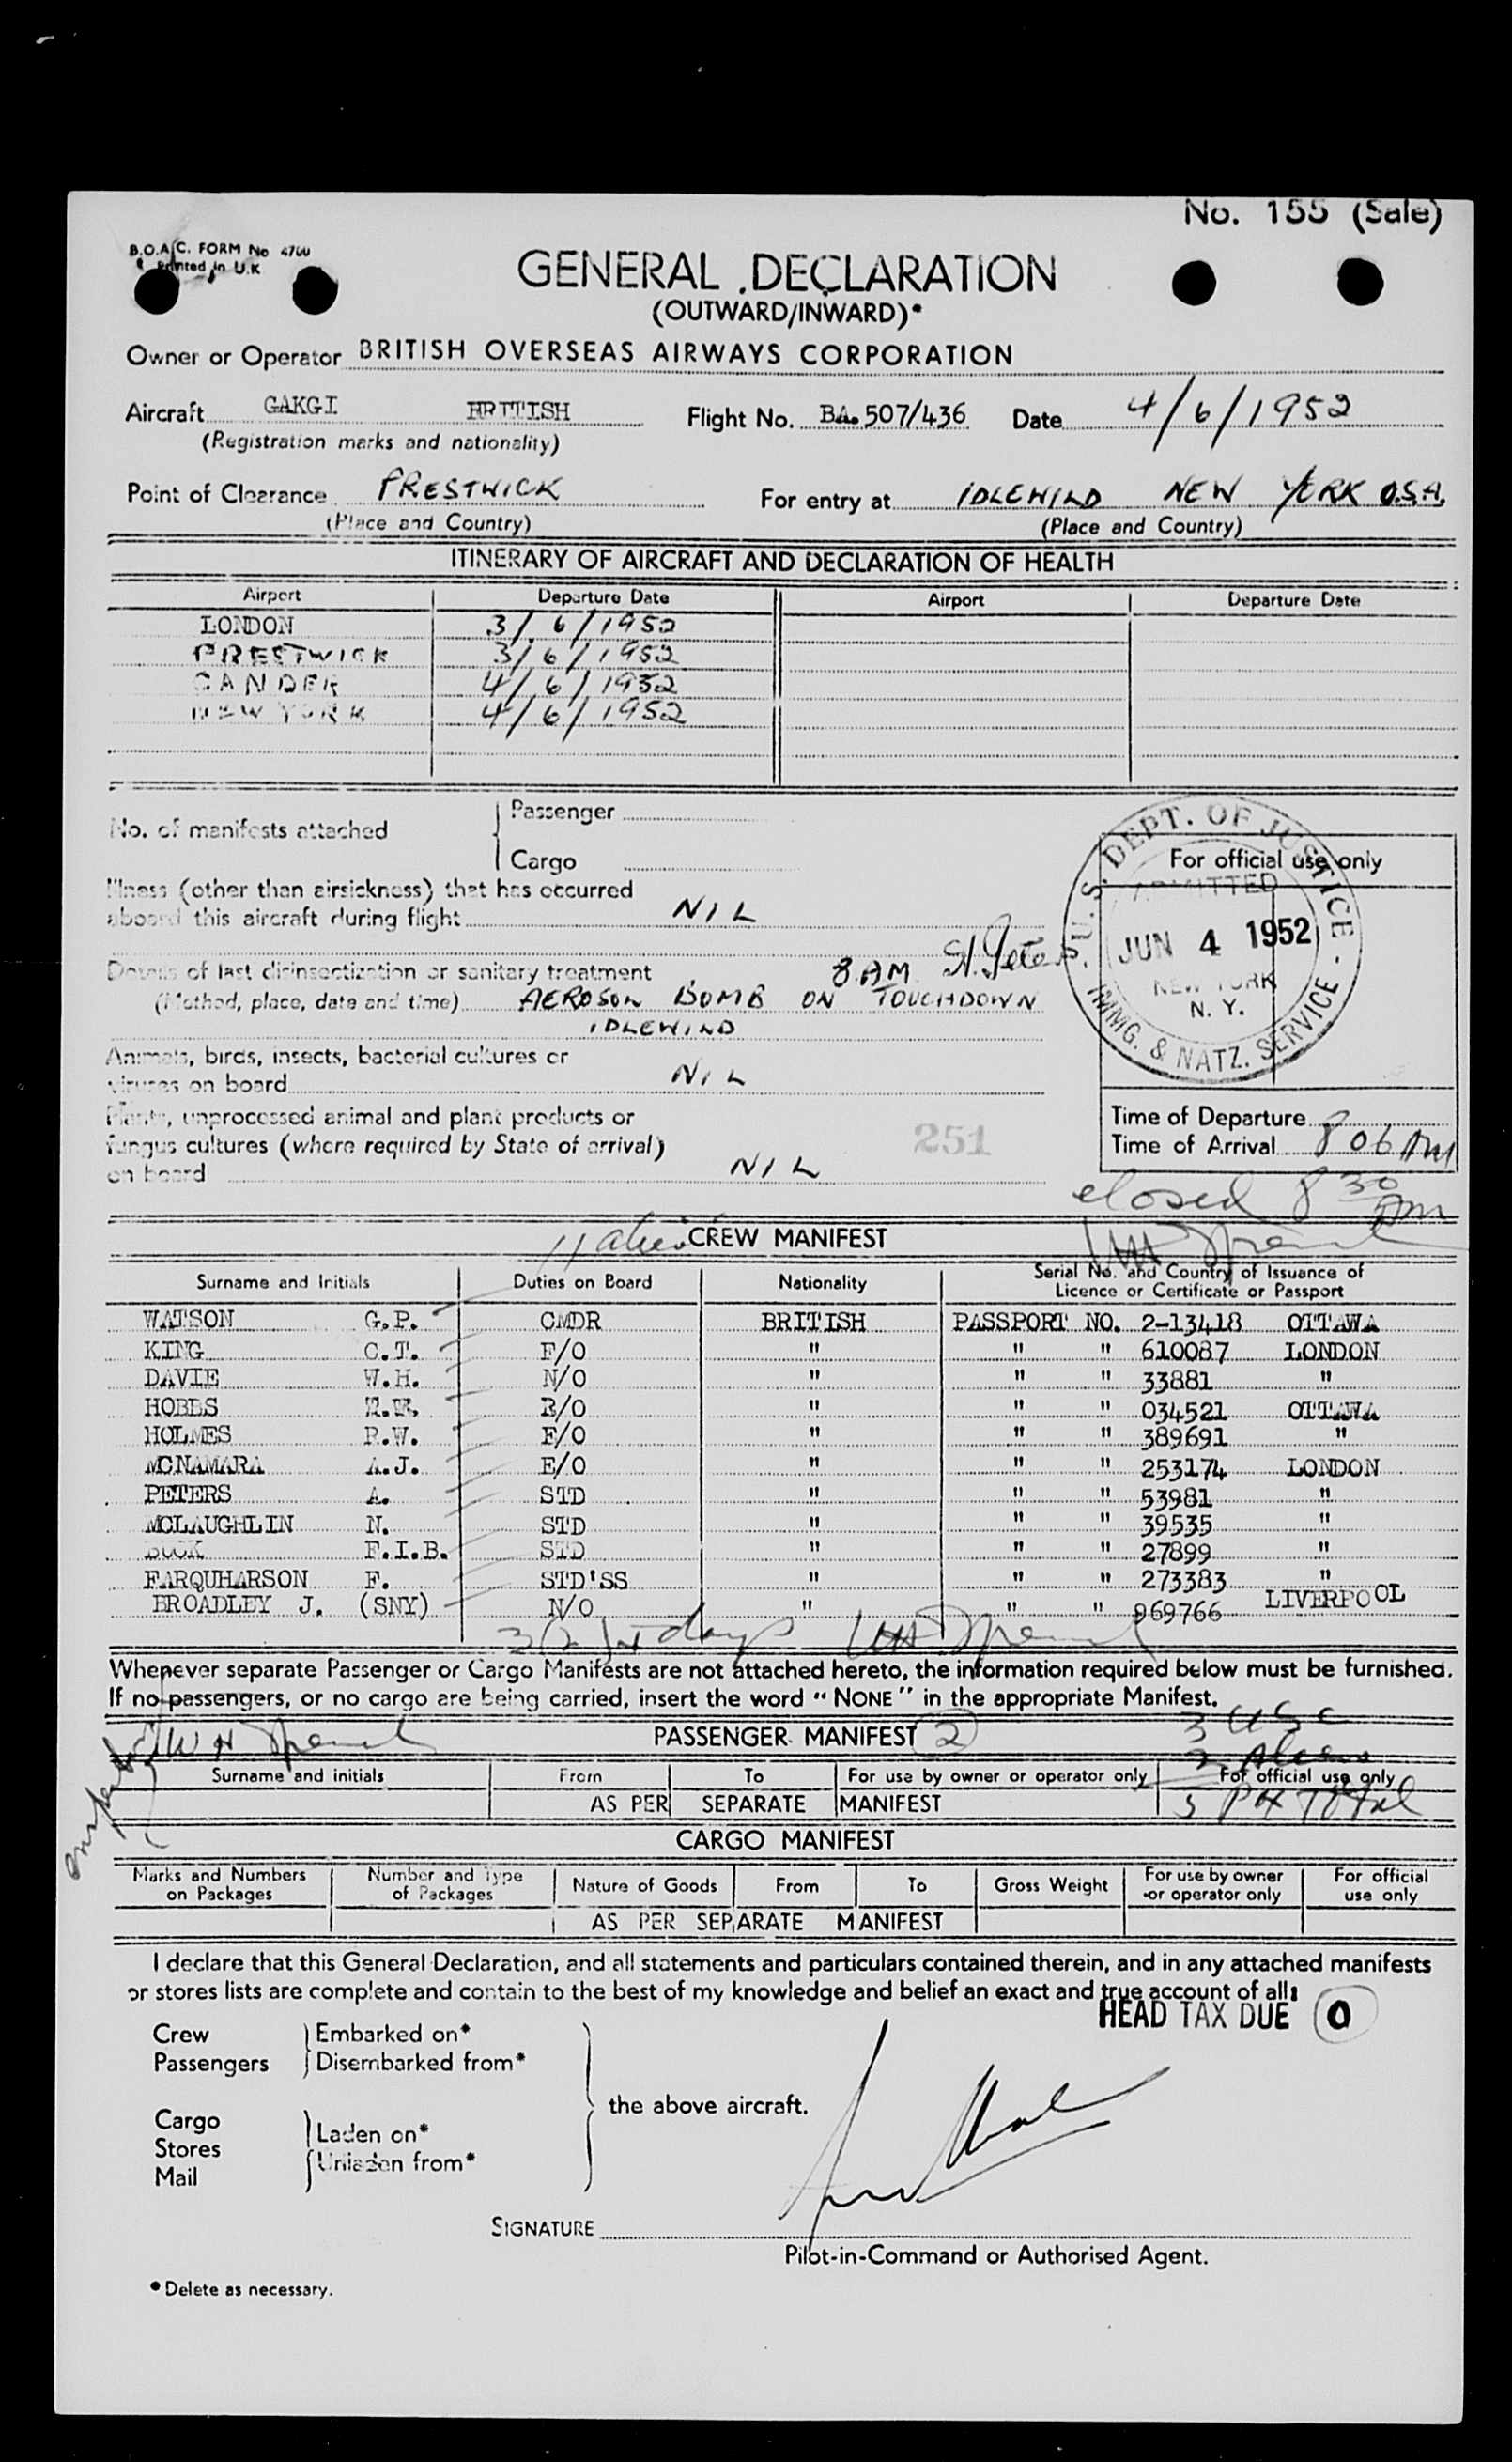 No. 155 (Sale)
B.O.A.C. FORM No 4700
Printed in U.K
GENERAL DECLARATION
(OUTWARD/INWARD)*
Owner or Operator BRITISH OVERSEAS AIRWAYS CORPORATION
Aircraft GAKGI BRITISH Flight No. BA. 507/436 Date 4/6/1952
(Registration marks and nationality)
Point of Clearance PRESTWICK For entry at IDLEWILD NEW YORK U.S.A.
(Place and Country) (Place and Country)
ITINERARY OF AIRCRAFT AND DECLARATION OF HEALTH
Airport Departure Date Airport Departure Date
LONDON 3/6/1952
PRESTWICK 3/6/1952
GANDER 4/6/1952
NEW YORK 4/6/1952
No. of manifests attached
Passenger
Cargo
Illness (other than airsickness) that has occurred
aboard this aircraft during flight NIL
Details of last disinsectization or sanitary treatment 8 AM St. Peters
(Method, place, date and time) AEROSOL BOMB ON TOUCHDOWN
IDLEWILD
Animals, birds, insects, bacterial cultures or
viruses on board NIL
Plants, unprocessed animal and plant products or
fungus cultures (where required by State of arrival)
on board NIL
251
For official use only
U.S. DEPT. OF JUSTICE - IMMG. & NATZ. SERVICE -
ADMITTED
JUN 4 1952
NEW YORK
N. Y.
Time of Departure
Time of Arrival 8 06 AM
closed 8 30 AM
11 aliens CREW MANIFEST
Surname and Initials Duties on Board Nationality Serial No. and Country of Issuance of
Licence or Certificate or Passport
WATSON G.P. CMDR BRITISH PASSPORT NO. 2-13418 OTTAWA
KING C.T. F/O " " " 610087 LONDON
DAVIE W.H. N/O " " " 33881 "
HOBBS R/O " " " 034521 OTTAWA
HOLMES R.W. E/O " " " 389691 "
MCNAMARA A.J. E/O " " " 253174 LONDON
PETERS A. STD " " " 53981 "
MCLAUGHLIN N. STD " " " 39535 "
BUCK F.I.B. STD " " " 27899 "
FARQUHARSON F. STD'SS " " " 273383 "
BROADLEY J. (SNY) N/O " " " 969766 LIVERPOOL
days
Whenever separate Passenger or Cargo Manifests are not attached hereto, the information required below must be furnished.
If no passengers, or no cargo are being carried, insert the word "NONE" in the appropriate Manifest.
PASSENGER MANIFEST 2
3 USC
2 Aliens
Surname and initials From To For use by owner or operator only For official use only
AS PER SEPARATE MANIFEST 5 PX Total
CARGO MANIFEST
Marks and Numbers on Packages Number and Type of Packages Nature of Goods From To Gross Weight For use by owner or operator only For official use only
AS PER SEPARATE MANIFEST
I declare that this General Declaration, and all statements and particulars contained therein, and in any attached manifests
or stores lists are complete and contain to the best of my knowledge and belief an exact and true account of all:
HEAD TAX DUE 0
Crew Embarked on*
Passengers Disembarked from*
the above aircraft.
Cargo
Stores Laden on*
Mail Unladen from*
SIGNATURE
Pilot-in-Command or Authorised Agent.
* Delete as necessary.